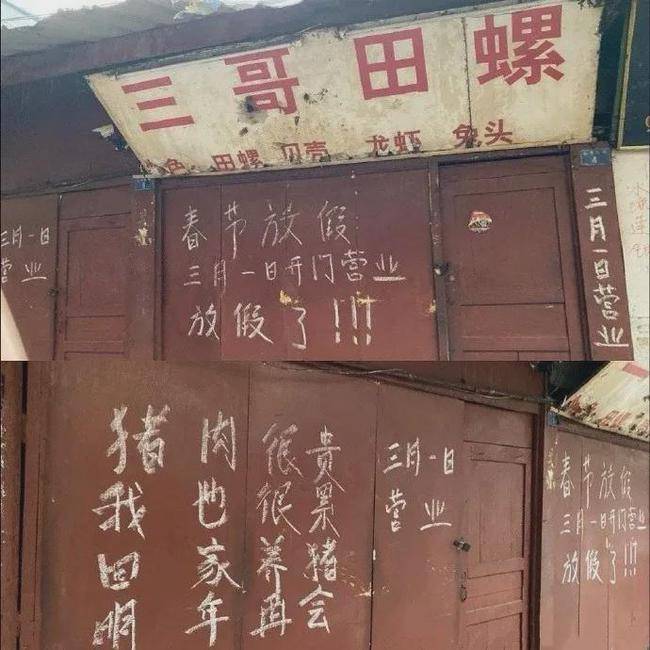 三哥田螺
田螺 贝壳 龙虾 兔头
三月一日
营业
春节放假
三月一日开门营业
放假了!!!
三月一日营业
猪肉很贵
我也很累
回家养猪
明年再会
三月一日
营业
春节放假
三月一日开门营业
放假了!!!